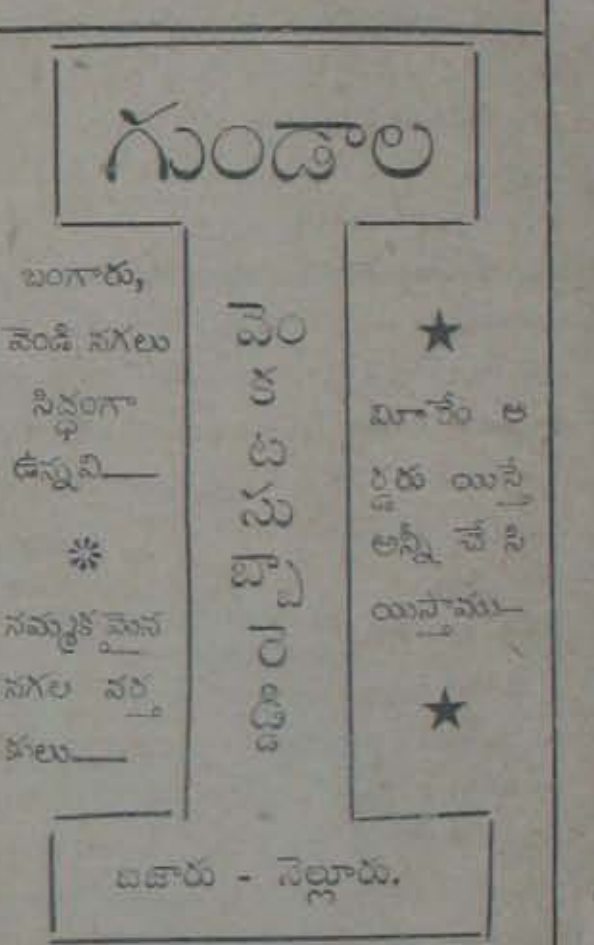 గుండాల
బంగారు,
వెండి నగలు
సిద్ధంగా
ఉన్నవి——
నమ్మకమైన
నగల వర్త
కులు——
వెం
క
ట
సు
బ్బా
రె
డ్డి
మీరేం ఆ
ర్డరు యిస్తే
అన్నీ చేసి
యిస్తాము—
బజారు - నెల్లూరు.